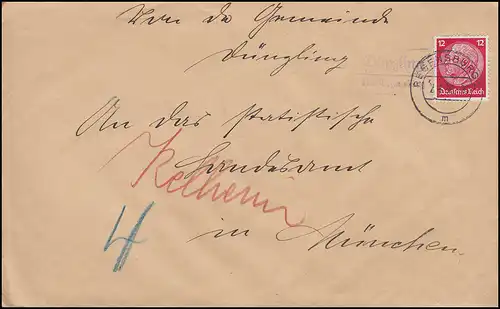 Von der Gemeinde
Dünzling
12 12
Deutsches Reich
REGENSBURG
m
An das statistische
Landesamt
Kelheim
4
in München